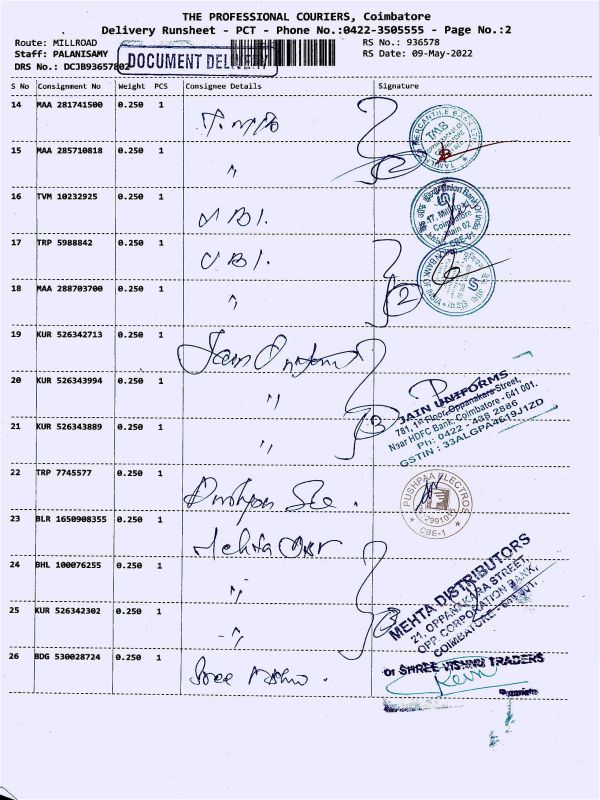 THE PROFESSIONAL COURIERS, Coimbatore
Delivery Runsheet - PCT - Phone No.:0422-3505555 - Page No.:2
Route: MILLROAD RS No.: 936578
Staff: PALANISAMY RS Date: 09-May-2022
DRS No.: DCJB93657802
DOCUMENT DELIVERY
S No Consignment No Weight PCS Consignee Details Signature
14 MAA 281741500 0.250 1 T.MB
TAMILNAD MERCANTILE BANK LTD
TMB
15 MAA 285710818 0.250 1 " 2
16 TVM 10232925 0.250 1 UBI.
Union Bank Of India
17, Mill Road
Coimbatore
Main 02
CBE-01
17 TRP 5988842 0.250 1 UBI.
18 MAA 288703700 0.250 1 " 2
19 KUR 526342713 0.250 1 Jain Uniforms
20 KUR 526343994 0.250 1 "
JAIN UNIFORMS
781, 1st Floor, Oppanakara Street,
Near HDFC Bank, Coimbatore - 641 001.
Ph: 0422 - 438 2886
GSTIN : 33ALGPA4E19J1ZD
21 KUR 526343889 0.250 1 " 3
22 TRP 7745577 0.250 1
PUSHPAA ELECTROS
CBE-1
23 BLR 1650908355 0.250 1 Mehta
24 BHL 100076255 0.250 1 "
MEHTA DISTRIBUTORS
21, OPPANAKARA STREET,
OPP CORPORATION BANK,
COIMBATORE - 641 001.
25 KUR 526342302 0.250 1 " 3
26 BDG 530028724 0.250 1 Sree Vishnu.
or SHREE VISHNU TRADERS